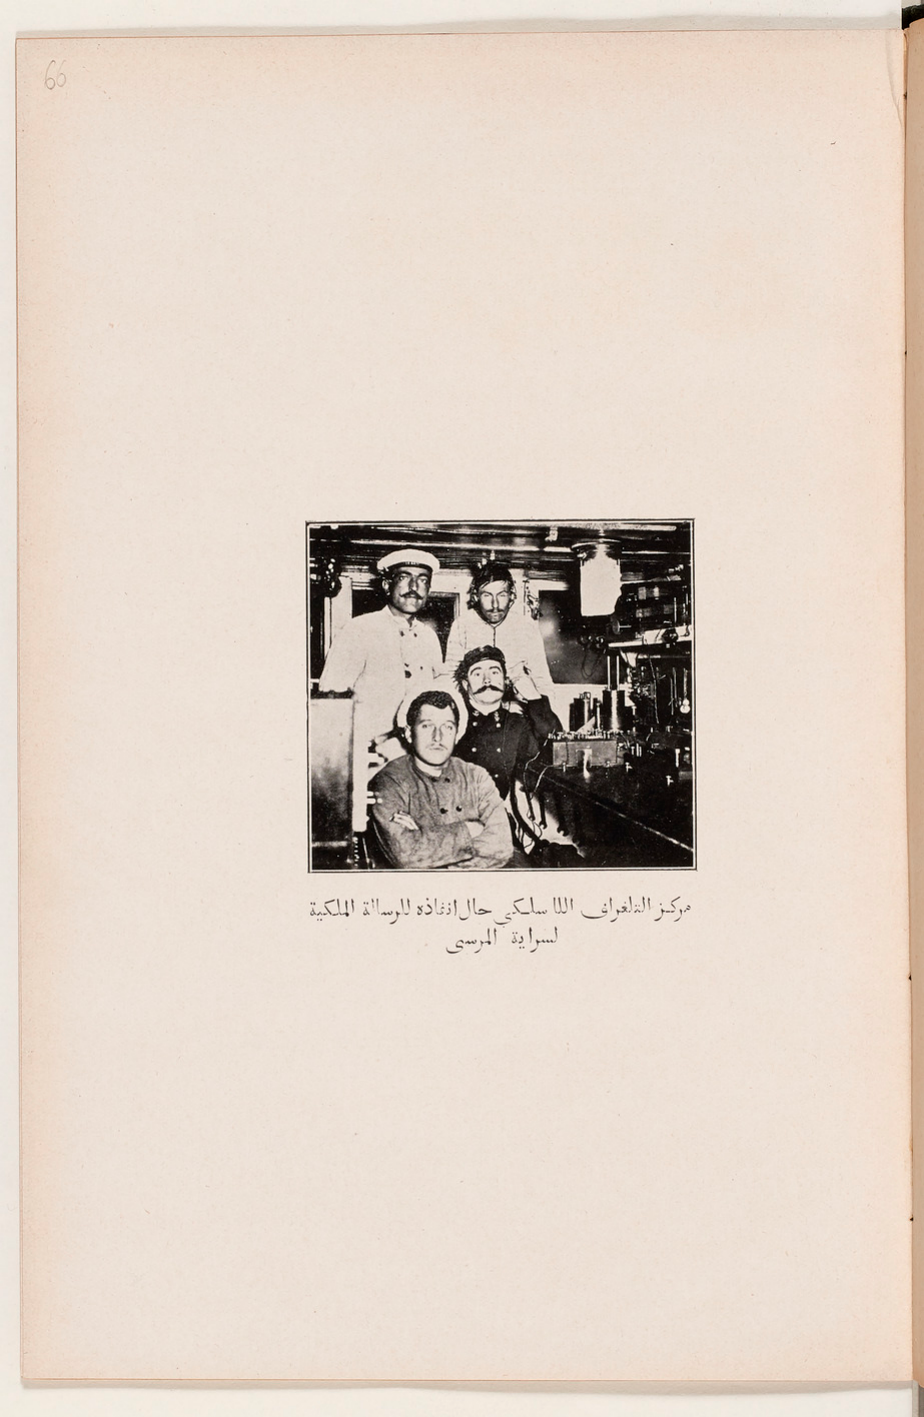 66
مركز التلغراف اللا سلكي حال انفاذه للرسالة الملكية
لسراية المرسى